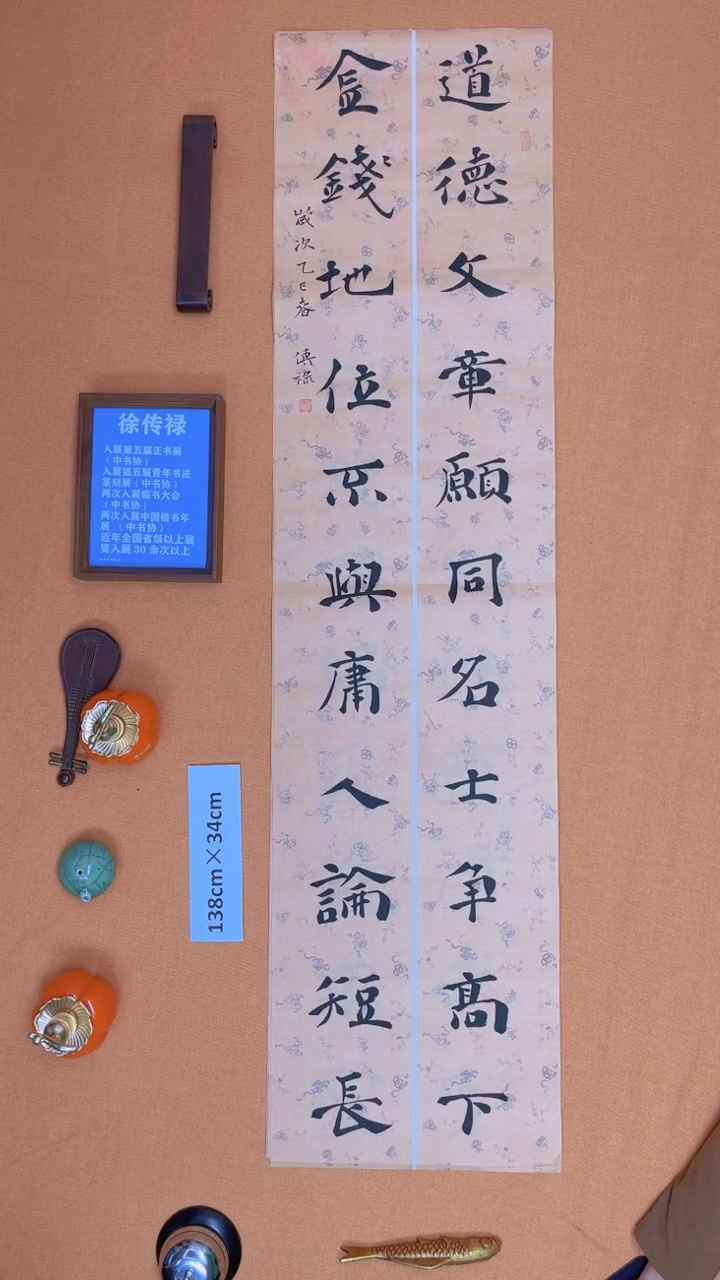 道德文章願同名士争高下
金錢地位不與庸人論短長
歲次乙巳春 傳祿
徐传禄
入展第五届正书展
（中书协）
入展第五届青年书法
篆刻展（中书协）
两次入展临书大会
（中书协）
两次入展中国楷书年
展（中书协）
近年全国省级以上展
览入展 30 余次以上
......
138cm×34cm